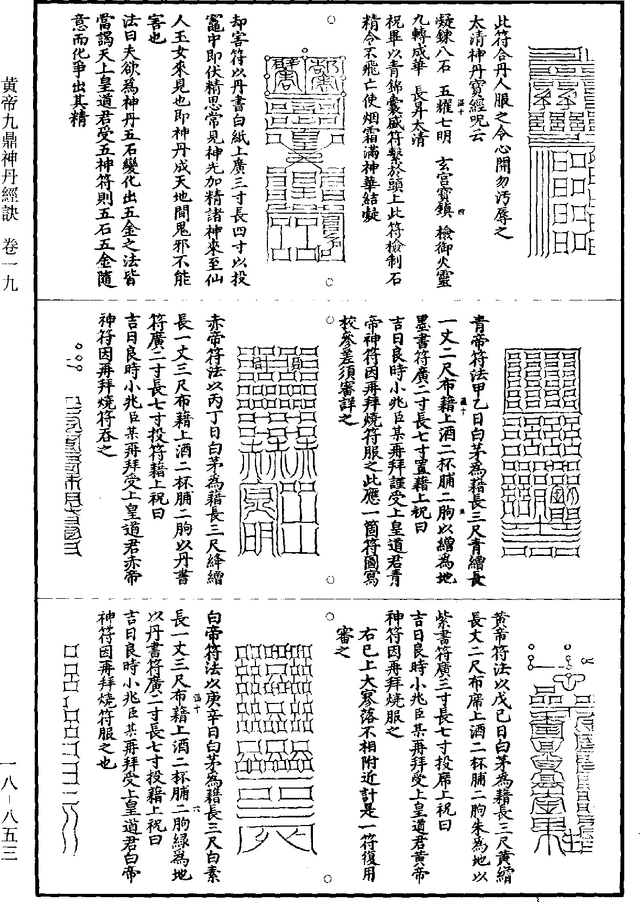 此符合丹人服之令心開勿污辱之
太清神丹寶經呪云
凝鍊八石　五耀七明　玄宮寶鎮　檢御火靈
九轉成華　長昇太清
祝畢以青錦囊盛符繫於頭上此符檢制石
精令不飛亡使烟霜滿神華結凝
却害符以丹書白紙上廣三寸長四寸以投
竈中即伏精思常見神先加精諸神來至仙
人玉女來見也即神丹成天地間鬼邪不能
害也
法曰夫欲為神丹五石變化出五金之法皆
當謁天上皇道君受五神符則五石五金隨
意而化爭出其精
青帝符法甲乙日白茅為藉長三尺青繒長
一丈二尺布藉上酒二杯脯二朐以繒為地
墨書符廣二寸長七寸置藉上祝曰
吉日良時小兆臣某再拜謹受上皇道君青
帝神符因再拜燒符服之此應一箇符圖寫
校參差須審詳之
赤帝符法以丙丁日白茅為藉長三尺絳繒
長一丈三尺布藉上酒二杯脯二朐以丹書
符廣二寸長七寸投符藉上祝曰
吉日良時小兆臣某再拜受上皇道君赤帝
神符因再拜燒符吞之
黃帝符法以戊己日白茅為藉長三尺黃繒
長丈二尺布席上酒二杯脯二朐朱為地以
紫書符廣三寸長七寸投席上祝曰
吉日良時小兆臣某再拜受上皇道君黃帝
神符因再拜燒服之
右已上大寥落不相附近計是一符復用
審之
白帝符法以庚辛日白茅為藉長三尺白素
長一丈三尺布藉上酒二杯脯二朐綠為地
以丹書符廣二寸長七寸投藉上祝曰
吉日良時小兆臣某再拜受上皇道君白帝
神符因再拜燒符服之也
黄帝九鼎神丹經訣　卷一九
一八－八五三